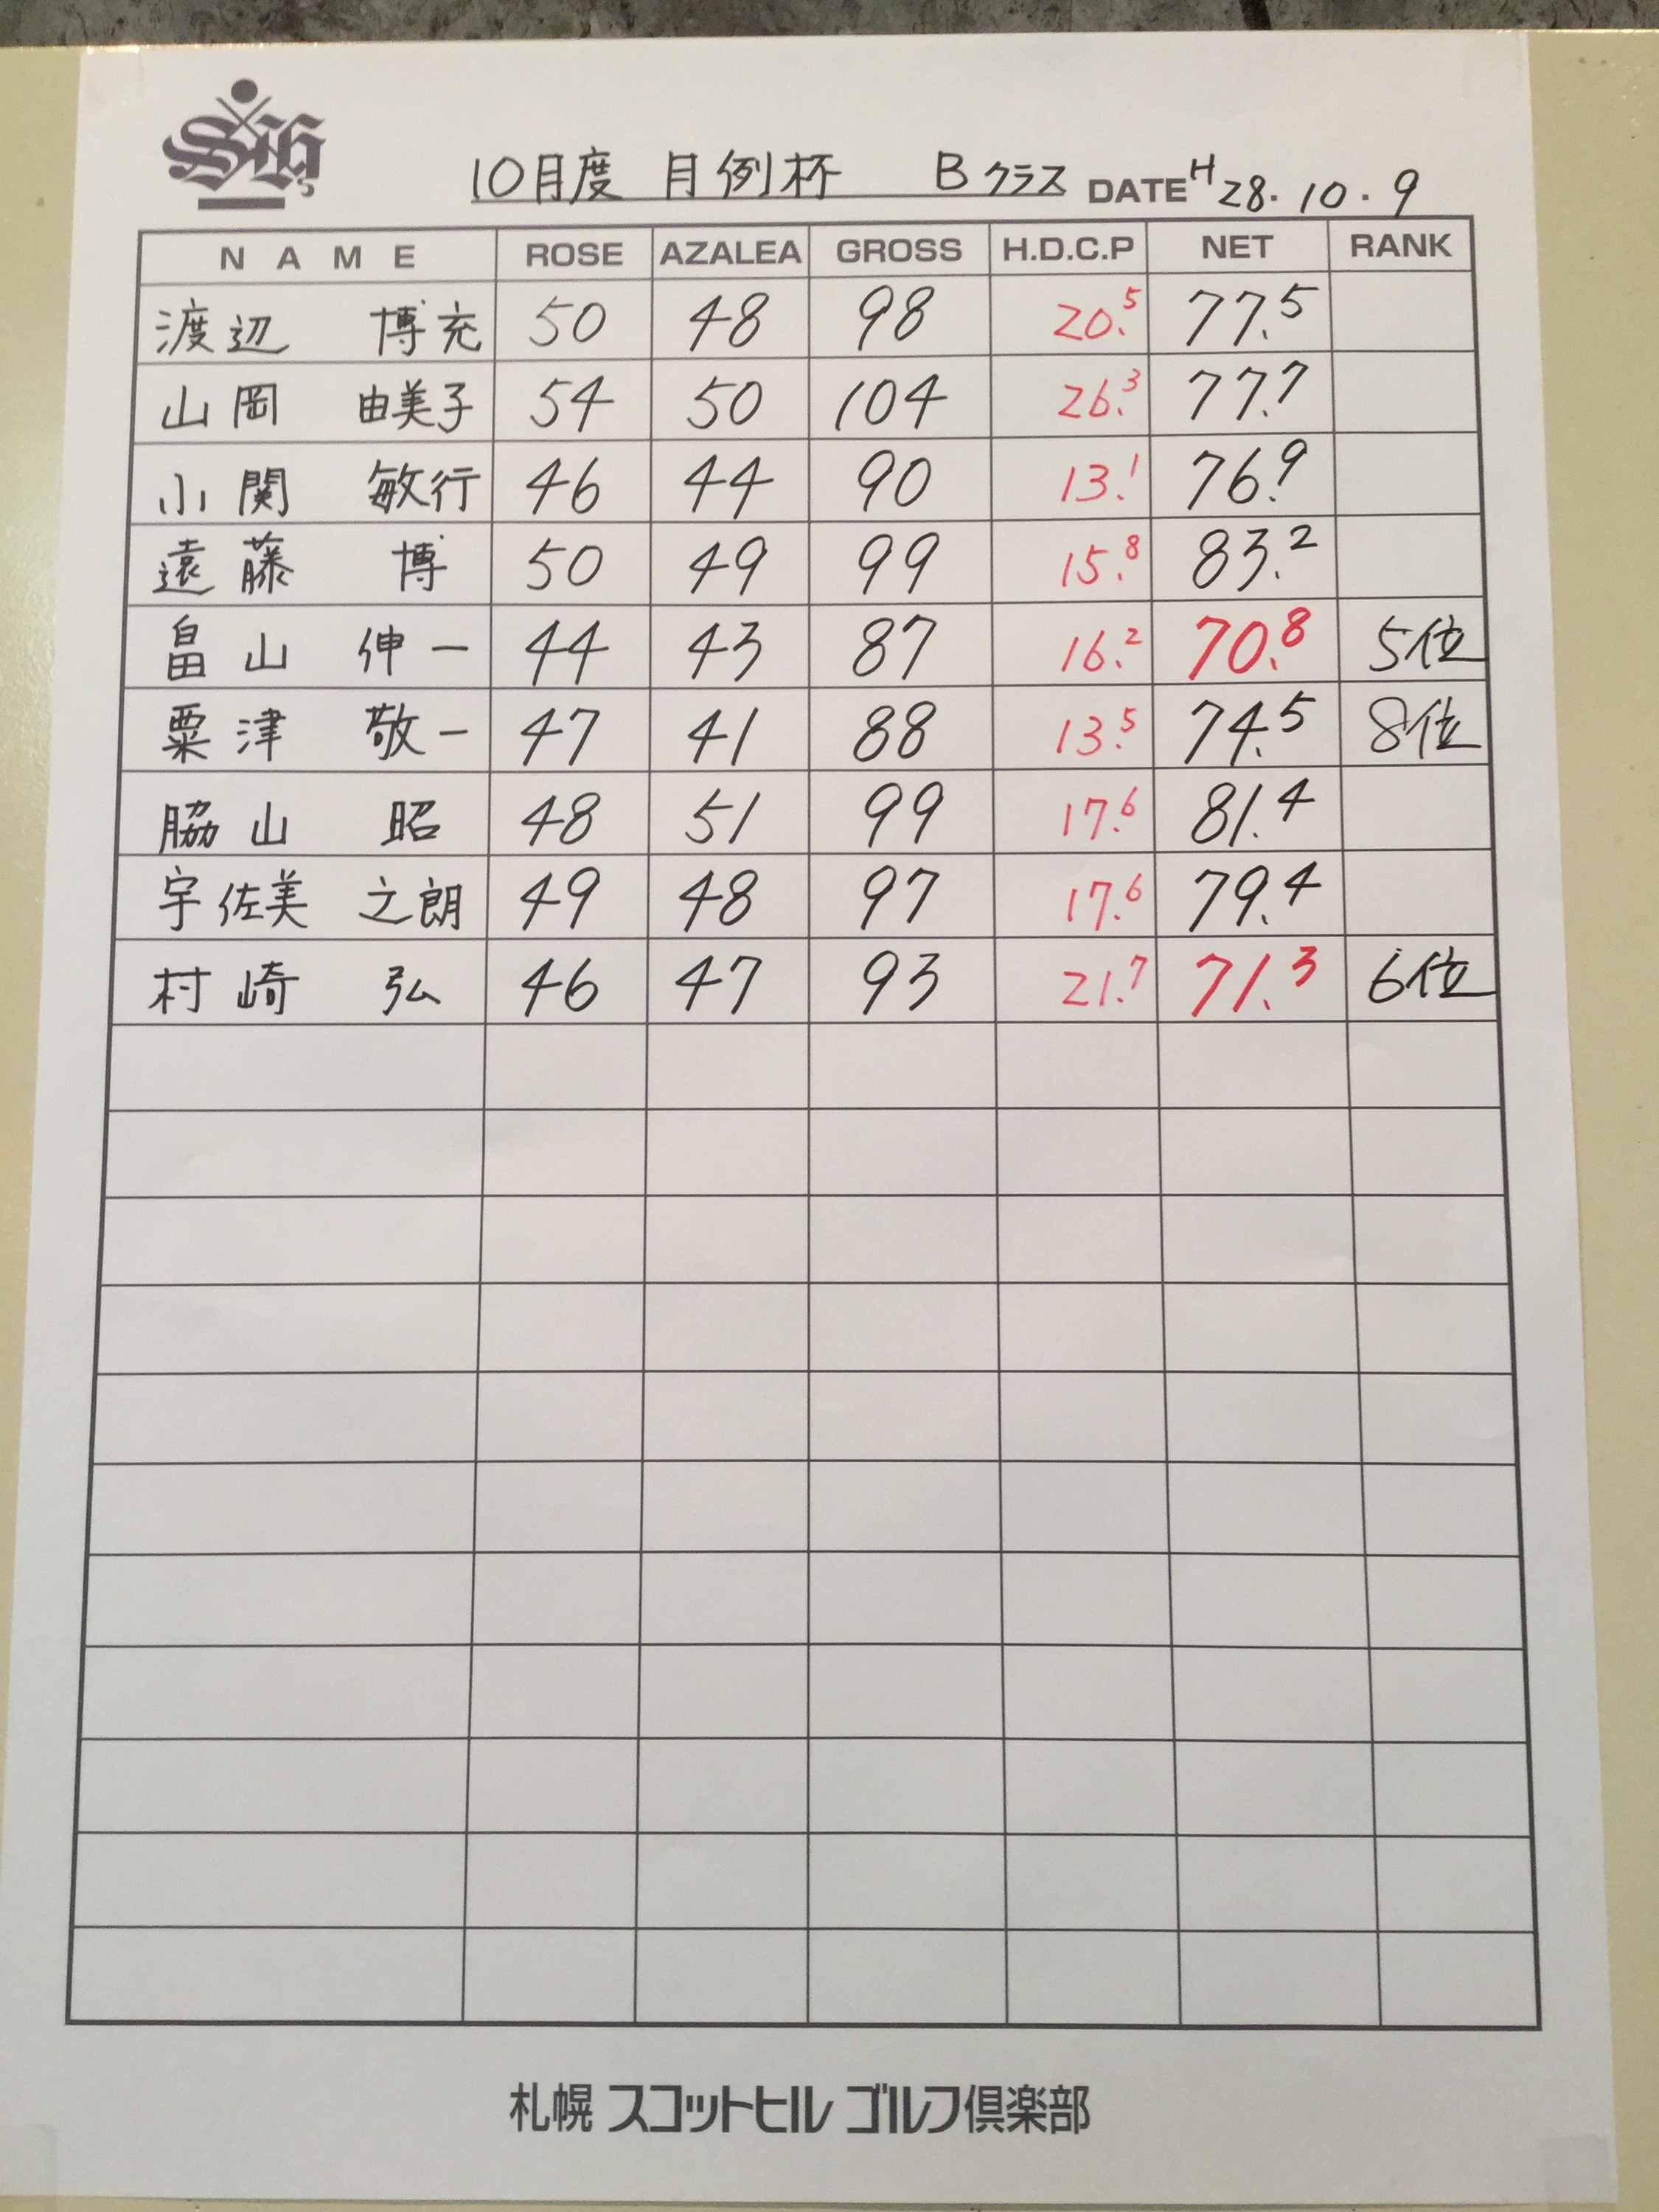 SHS
10月度 月例杯 Bクラス DATE H28.10.9
NAME ROSE AZALEA GROSS H.D.C.P NET RANK
渡辺 博充 50 48 98 20.5 77.5
山岡 由美子 54 50 104 26.3 77.7
小関 敏行 46 44 90 13.1 76.9
遠藤 博 50 49 99 15.8 83.2
畠山 伸一 44 43 87 16.2 70.8 5位
粟津 敬一 47 41 88 13.5 74.5 8位
脇山 昭 48 51 99 17.6 81.4
宇佐美 之朗 49 48 97 17.6 79.4
村崎 弘 46 47 93 21.7 71.3 6位
札幌 スコットヒル ゴルフ倶楽部